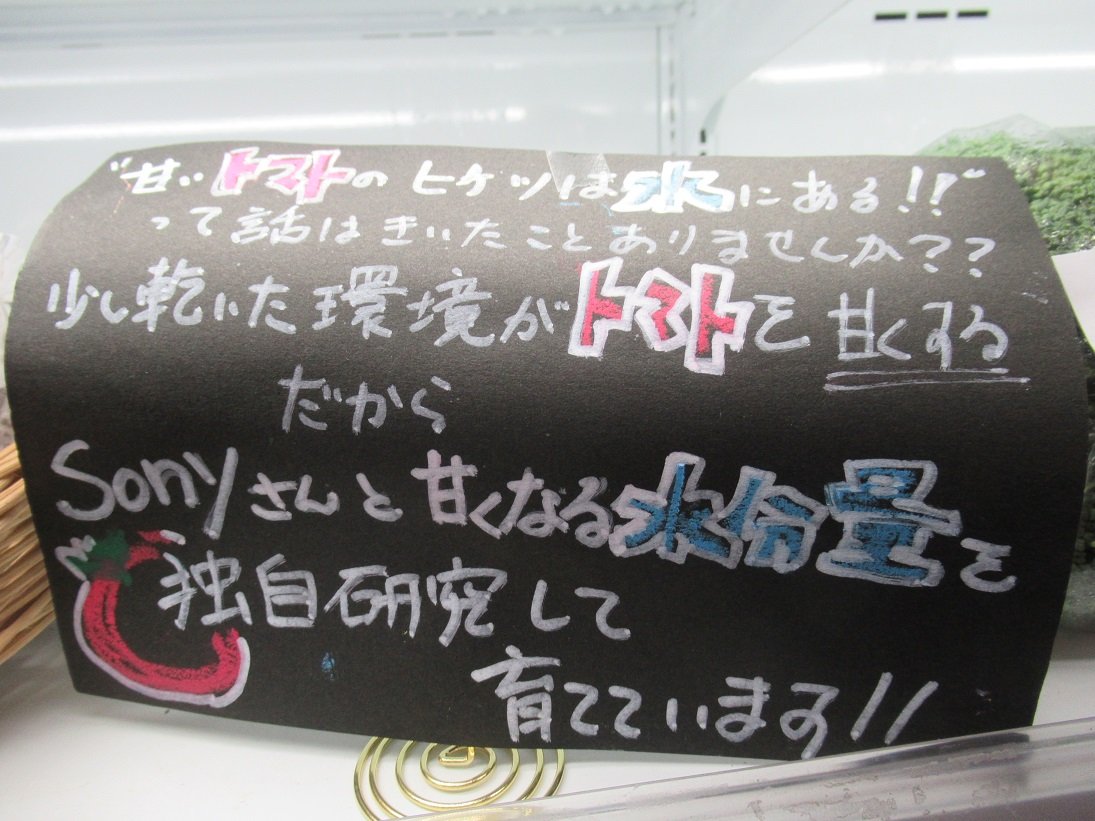 "甘いトマトのヒケツは水にある!!"
って話はきいたことありませんか??
少し乾いた環境がトマトを甘くする
だから
Sonyさんと甘くなる水分量を
独自研究して
育てています!!